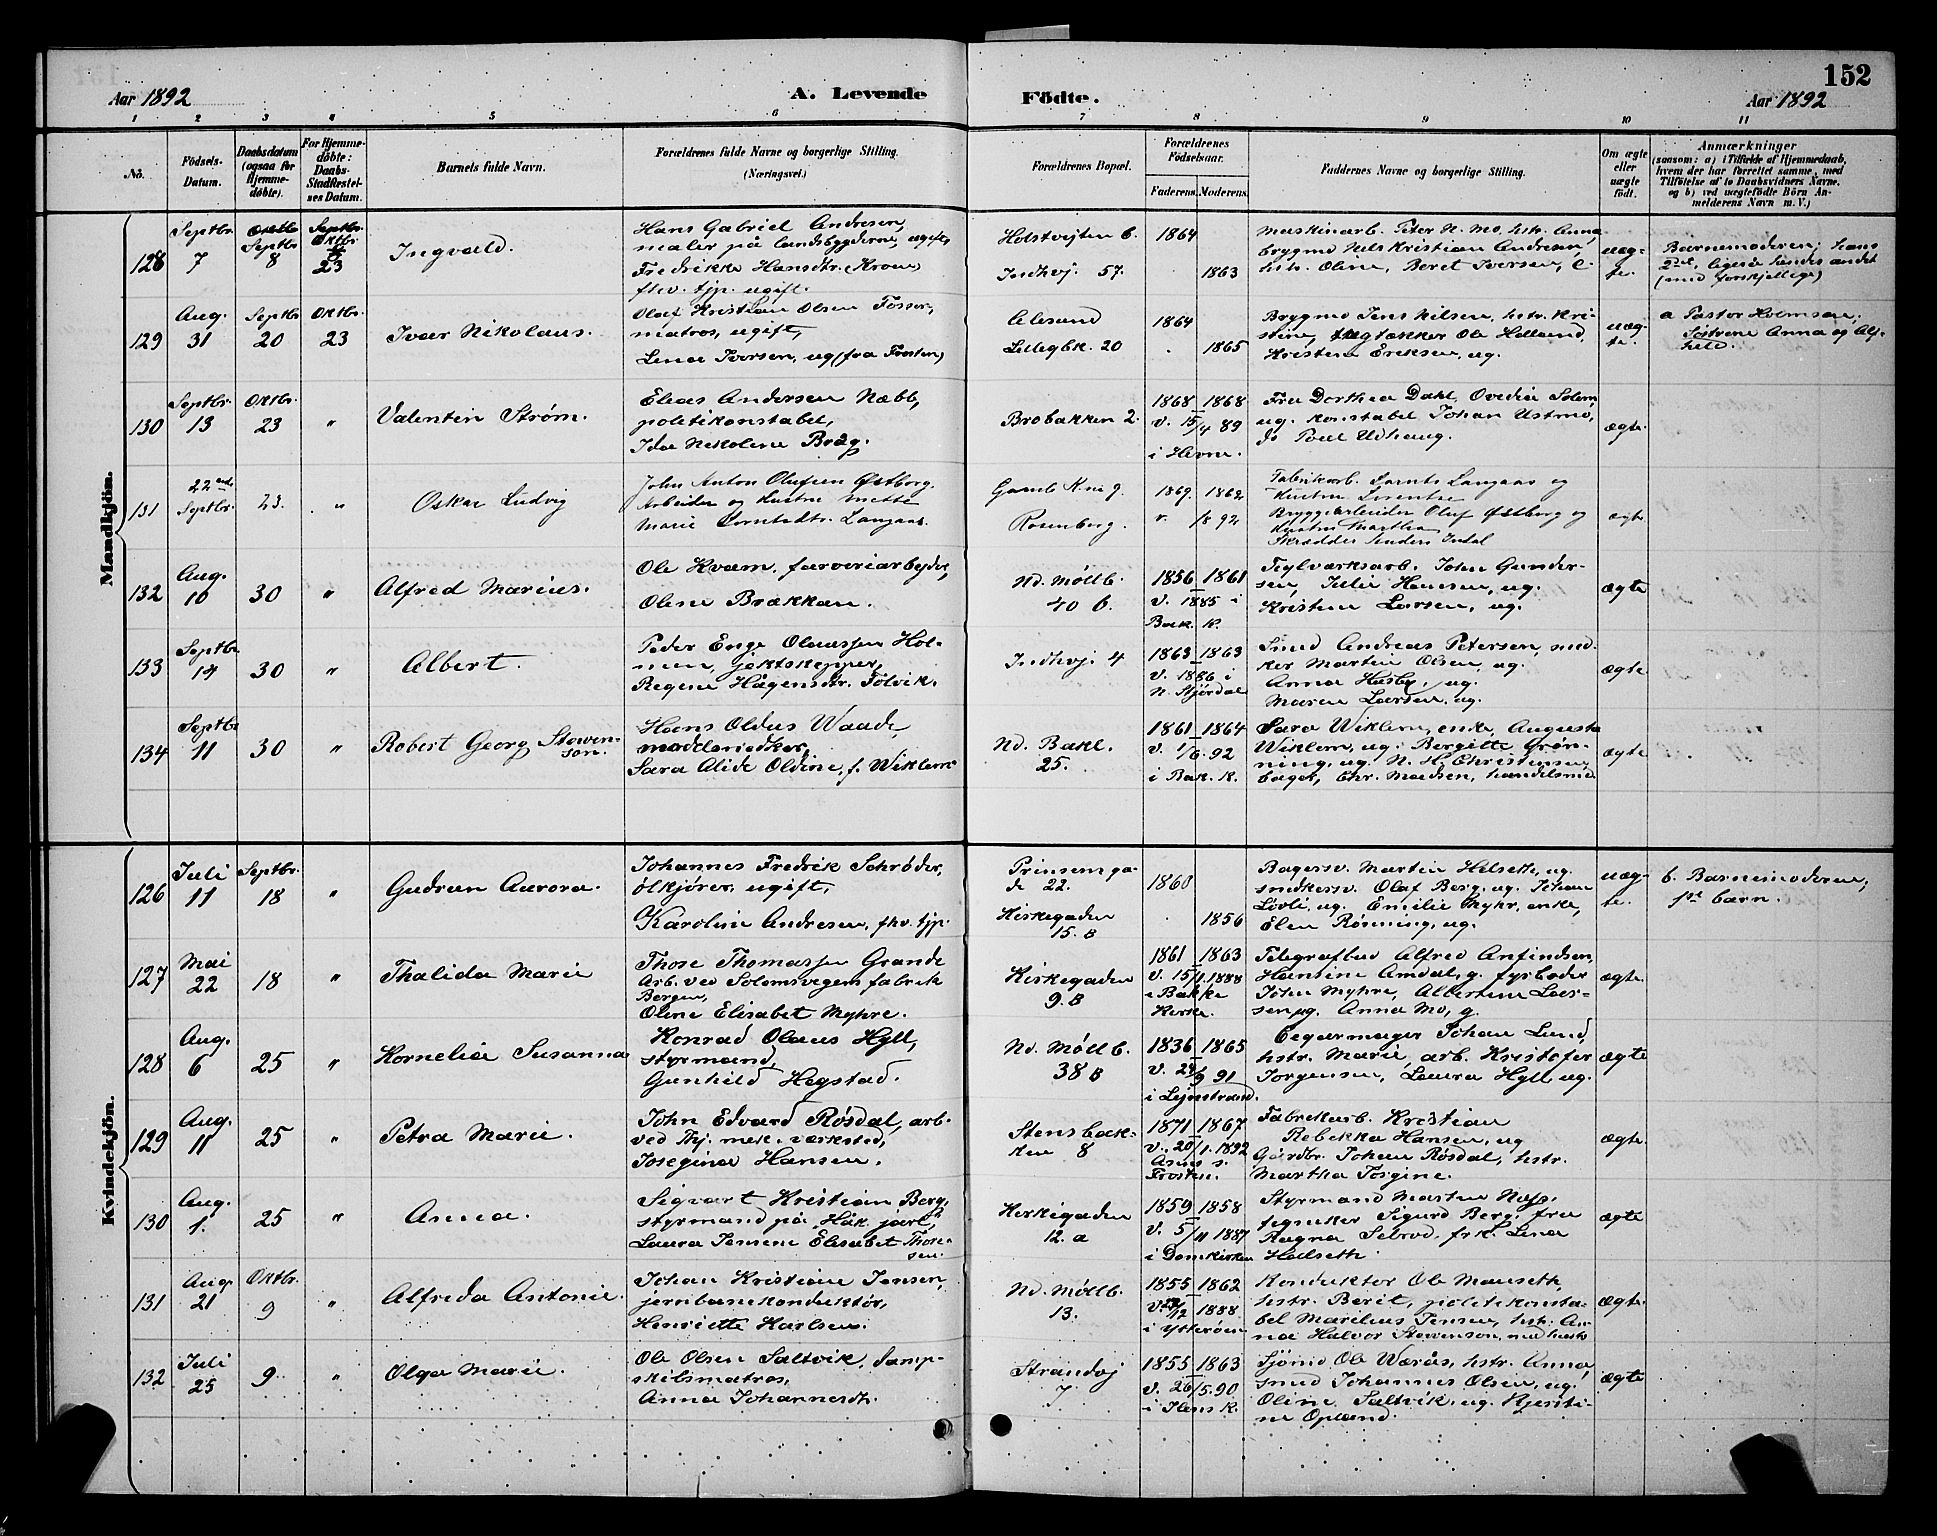 152
Aar 1892
A. Levende
Födte.
Aar 1892
1 2 3 4 5 6 7 8 9 10 11
No. Födsels-Datum. Daabsdatum (ogsaa for Hjemmedöbte). For Hjemmedöbte: Daabs-Stadfæstelses Datum. Barnets fulde Navn. Forældrenes fulde Navne og borgerlige Stilling. (Næringsvei.) Forældrenes Bopæl. Forældrenes Födselsaar. Faderens. Moderens. Faddernes Navne og borgerlige Stilling. Om ægte eller uægte födt. Anmærkninger (saasom: a) i Tilfælde af Hjemmedaab, hvem der har forrettet samme, med Tilföielse af to Daabsvidners Navne, og b) ved uægtefödte Börn Anmelderens Navn m. V.)
Mandkjön.
128 Septbr. 7 Septbr 8 Oktbr. 23 Ingvald.
Hans Gabriel Andresen,
maler på landsbygderne, ugift,
Fredrikke Hansdtr. (Krone)
fhv. tjp. ugift.
Holstvejten 6. 1864
Indhvj. 57. 1863
Maskinarb. Peter N. Mo, hstr. Anna,
brygmd Nils Kristian Andresen,
hstr. Oline, Beret Iversen, e.
uægte.
Barnemoderen; hans
2det, ligeså hendes andet
(med forskjellige)
129 Aug. 31 Septbr 20 Oktbr. 23 Ivar Nikolaus.
Olaf Kristian Olsen Fosser,
matros, ugift,
Lena Iversen, ug (fra Frosten)
Ålesund 1864
Lillegbk. 20 1865
Brygmd Jens Nilsen, hstr. Kristine, Ole Helland,
Kristen Eriksen, ug.
uægte.
a Pastor Holmsen;
Søstrene Anna og Alfhild.
130 Septbr. 13 Oktbr. 23 " Valentin Strøm.
Elias Andersen Næbb,
politikonstabel,
Ida Nikoline Bråg.
Brobakken 2.
1868 1868
v. 15/4 89
i Hevne.
Fru Dorthea Dahl, Ovedia Solem,
ug. konstabel Johan Ustmo,
do Poul Udhaug.
ægte.
131 22 Septbr. 23. " Oskar Ludvig
John Anton Olufsen Østborg.
Arbeider og Hustru Mette
Marie Langaas.
Gamb K.ni 9.
Rosenborg.
1869. 1862
v. /8 92
Fabrikarb. Langaas og
Hustru
Bryggearbeider Oluf Østborg og
Hustru Martha
Skrædder Anders Indal
ægte
132 Aug. 10 30 " Alfred Marius.
Ole Kvam, farveriarbejder,
Oline Brækkan.
Nd. Møllb.
40 b.
1856 1861
v. 1885 i
Bak. K.
Teglværksarb. John Gundersen, Julie Hansen, ug.
Kristine Larsen, ug.
ægte
133 Septbr 14 30 " Albert.
Peder Enge Olaussen Holmen, jektskipper,
Regine Hågensdtr. Følvik.
Indhvj. 4
1863 1863
v. 1886 i
N. Stjørdal
Smed Andreas Petersen, snedker Martin Olsen, ug.
Anna Husby, ug.
Maren Larsen, ug.
ægte
134 Septbr 11 30 " Robert Georg Stevenson.
Hans Oldus Waade
modelsnedker,
Sara Alide Oldine, f. Wiklem
Nd. Bakl.
25.
1861 1864
v. 1/6 92
i Bak. K.
Sara Wiklem, enke, Augusta
Wiklem, ug. Bergitte Grønning, ug. N. H. Christensen,
bager, Chr. Madsen, handelsmd
ægte
Kvindekjön.
126 Juli 11 Septbr. 18 " Gudrun Aurora.
Johannes Fredrik Schrøder,
ølkjører, ugift,
Karoline Andresen, fhv. tjp.
Prinsensgade 22. 1860
Kirkegaden
15. B 1856
Bagersv. Martin Helseth, ug.
snedkersv. Olaf Berg, ug. Johan
Løvli, ug. Emilie Myhr, enke,
Elen Rønning, ug.
uægte.
b. Barnemoderen;
1st barn.
127 Mai 22 18 " Thalida Marie
Those Thomassen Grande
Arb. ved Solemsvegens fabrik
Bergen,
Oline Elisabet Myhre.
Kirkegaden
9. B
1861 1863
v. 15/1. 1888
i Bakke
Kirke.
Telegrafbud Alfred Anfindsen,
Hansine Amdal, g. fyrbøder
John Myhre, Albertine Larsen, ug. Anna Mo, g.
ægte.
128 Aug. 6 25 " Kornelia Susanna
Konrad Olaus Hyll,
styrmand,
Gunhild Hegstad.
Nd. Møllb.
38 B
1836 1865
v. 23/9 91
i Lejnstrand.
Cegarmager Johan Lund,
hstr. Marie, arb. Kristofer
Jørgensen, Laura Hyll ug.
ægte
129 Aug. 11 25 " Petra Marie.
John Edvard Røsdal, arb.
ved Thj. mek. værksted,
Josegina Hansen.
Stensbakken 8
1871 1867
v. 20/1. 1892
Åsens s.
Frosten.
Fabrikarb. Kristian
Rebekka Hansen, ug
Gårdbr. Johan Røsdal, hstr.
Martha Josgine.
ægte.
130 Aug. 1. 25 " Anna.
Sigvart Kristian Berg,
styrmand på Håk. jarl,
Laura Jensine Elisabet Thoresen.
Kirkegaden
12. a
1859 1858
v. 5/11 1887
i Domkirken
Styrmand Marten Næss,
tegneker Sigurd Berg, fru
Ragna Sebrod, frk. Lina
Hallseth.
ægte
131 Aug 21 Oktbr. 9 " Alfreda Antonie.
Johan Kristian Jensen,
jernbanekonduktør,
Henriette Karlsen.
Nd. Møllb.
13.
1855 1862
v. /12 1888
i Ytterøen
Konduktør Ole Mauseth,
hstr. Berit, politikonstabel Marelius Jensen, hstr. Anna Halvor Stevenson, med hustr
ægte.
132 Juli 25 9. " Olga Marie.
Ole Olsen Saltvik, dampskibsmatros,
Anna Johannesdtr.
Strandvj
7.
1855 1863
v. 26/5. 90
i Ilens K.
Sjømd Ole Wærås, hstr. Anna,
smed Johannes Olsen, ug.
Oline Saltvik, ug. Kjerstine Opland.
ægte